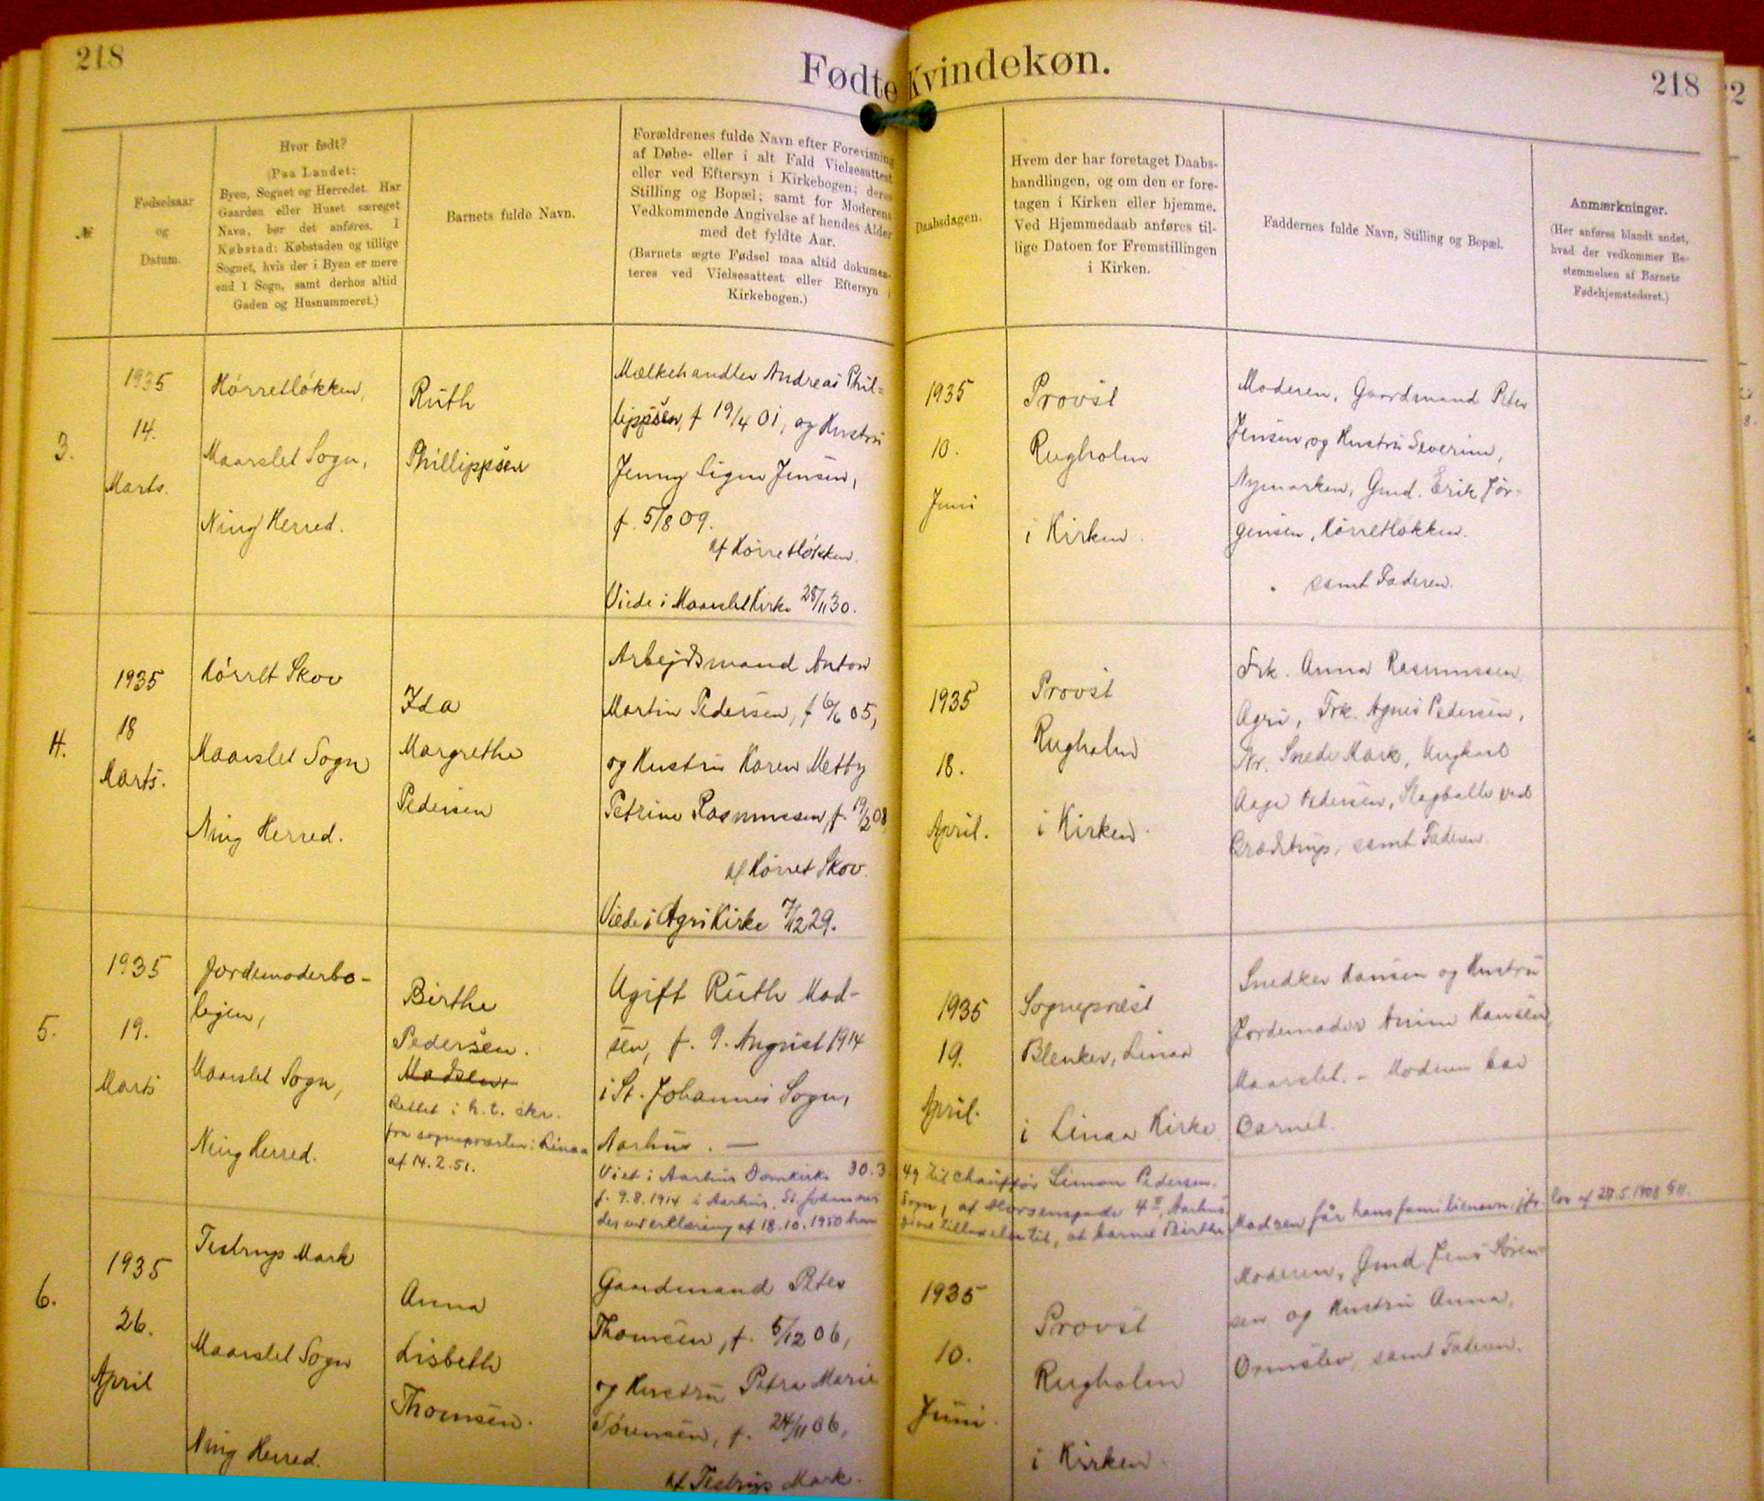 218
Fødte Kvindekøn.
218
№
Fødselsaar
og
Datum.
Hvor født?
(Paa Landet:
Byen, Sognet og Herredet. Har
Gaarden eller Huset særeget
Navn, bør det anføres. I
Købstad: Købstaden og tillige
Sognet, hvis der i Byen er mere
end 1 Sogn, samt derhos altid
Gaden og Husnummeret.)
Barnets fulde Navn.
Forældrenes fulde Navn efter Forevisning
af Døbe- eller i alt Fald Vielsesattest
eller ved Eftersyn i Kirkebogen; deres
Stilling og Bopæl; samt for Moderens
Vedkommende Angivelse af hendes Alder
med det fyldte Aar.
(Barnets ægte Fødsel maa altid dokumen-
teres ved Vielsesattest eller Eftersyn i
Kirkebogen.)
Daabsdagen.
Hvem der har foretaget Daabs-
handlingen, og om den er fore-
tagen i Kirken eller hjemme.
Ved Hjemmedaab anføres til-
lige Datoen for Fremstillingen
i Kirken.
Faddernes fulde Navn, Stilling og Bopæl.
Anmærkninger.
(Her anføres blandt andet,
hvad der vedkommer Be-
stemmelsen af Barnets
Fødehjemstedsret.)
3.
1935
14.
Marts.
Hørretløkken,
Maarslet Sogn,
Ning Herred.
Ruth
Phillippsen
Mælkehandler Andreas Phil-
lippsen, f 19/4 01, og Hustru
Jenny Signe Jensen,
f. 5/8 09.
af Hørretløkken.
Viede i Maarslet Kirke 28/11 30.
1935
10.
Juni
Provst
Rugholm
i Kirken.
Moderen, Gaardmand Peter
Jensen og Hustru Severine,
Nymarken, Gmd. Erik Jør-
gensen, Hørretløkken.
samt Faderen.
4.
1935
18
Marts.
Hørret Skov
Maarslet Sogn
Ning Herred.
Ida
Margrethe
Pedersen
Arbejdsmand Anton
Martin Pedersen, f 6/6 05,
og Hustru Karen Metty
Petrine Rasmussen, f. 19/2 08
af Hørret Skov.
Viede i Agri Kirke 7/12 29.
1935
18.
April.
Provst
Rugholm
i Kirken.
Frk. Anna Rasmussen
Agri, Frk. Agnes Pedersen,
Nr. Snede Mark, Ungkarl
Aage Pedersen, Slagballe ved
Brædstrup, samt Faderen.
5.
1935
19.
Marts
Jordemoderbo-
ligen,
Maarslet Sogn,
Ning Herred.
Birthe
Pedersen.
Madsen
Rettet i h. t. skr.
fra sognepræsten i Linaa
af 14.2.51.
Ugift Ruth Mad-
sen, f. 9. August 1914
i St. Johannes Sogn,
Aarhus. —
1935
19.
April.
Sognepræst
Blenker, Linaa
i Linaa Kirke
Snedker Hansen og Hustru
Jordemoder Anine Hansen,
Maarslet. – Moderen bar
Barnet.
Viet i Aarhus Domkirke 30.3.49 til chauffør Simon Pedersen.
f. 9.8.1914 i Aarhus, St. Johannes Sogn, af Horsensgade 4 II, Aarhus
der ved erklæring af 18.10.1950 have givet tilladelse til, at barnet Birthe Madsen får hans familienavn, jfr. lov af 27.5.1908 §11.
6.
1935
26.
April
Testrup Mark
Maarslet Sogn
Ning Herred.
Anna
Lisbeth
Thomsen.
Gaardmand Peter
Thomsen, f. 5/12 06,
og Hustru Petra Marie
Sørensen, f. 24/11 06,
af Testrup Mark.
1935
10.
Juni.
Provst
Rugholm
i Kirken.
Moderen, Gmd. Jens Søren-
sen og Hustru Anna,
Ormslev, samt Faderen.